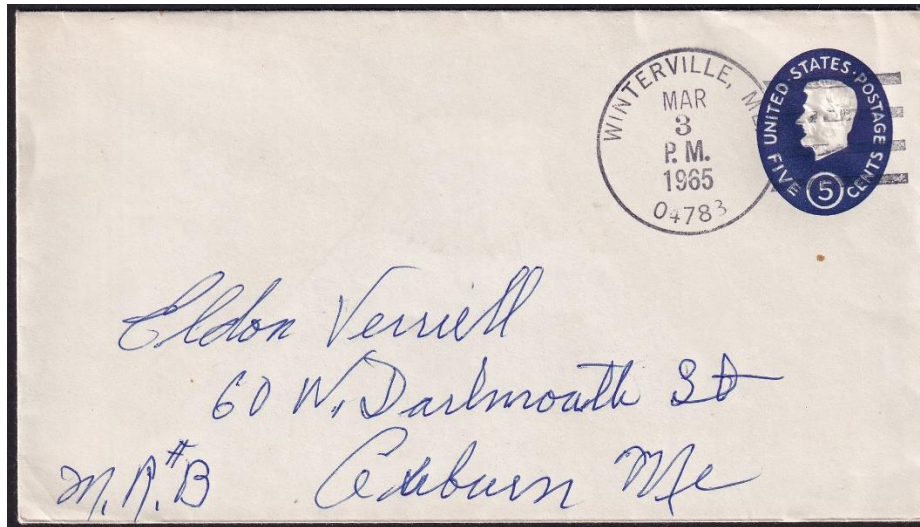 WINTERVILLE, ME
MAR
3
P. M.
1965
04783
UNITED · STATES · POSTAGE
FIVE 5 CENTS
Eldon Verrill
60 W. Dartmouth St
Auburn Me
M. R. #B